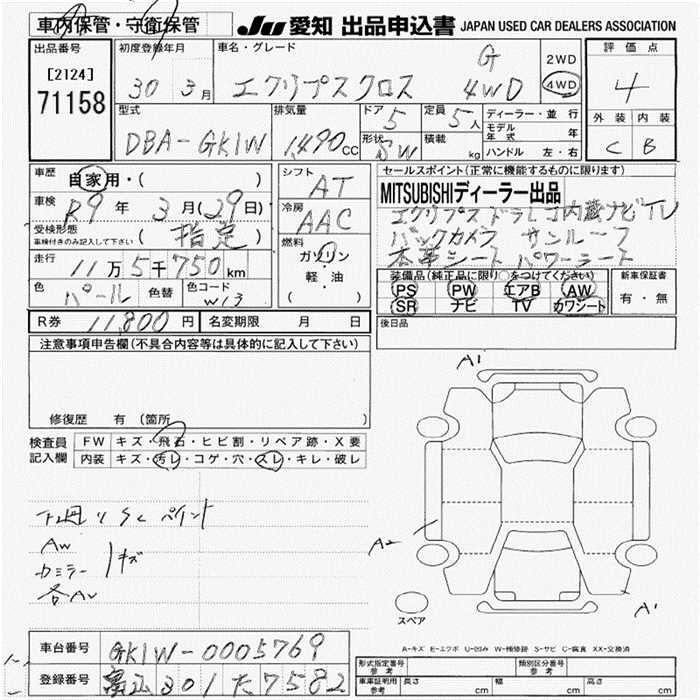 車内保管・守衛保管
JU 愛知 出品申込書 JAPAN USED CAR DEALERS ASSOCIATION
出品番号
[2124]
71158
初度登録年月
30 3月
車名・グレード
エクリプスクロス G 4WD
2WD
4WD
評価点
4
外装 内装
C B
型式
DBA-GK1W
排気量
1,490cc
ドア 5
定員 5人
形状 SW
積載 kg
ディーラー・並行
モデル年式 年
ハンドル 左・右
車歴
自家用・( )
車検 R9年 3月(29日)
受検形態
車検付きのみ記入して下さい
(指定)
走行 11万5千750km
色 パール
色替
色コード W13
シフト AT
冷房 AAC
燃料
ガソリン
軽・油
( )
セールスポイント(正常に機能するものに限ります)
MITSUBISHIディーラー出品
エクリプス ドラレコ内蔵ナビTV
バックカメラ サンルーフ
本革シート パワーシート
装備品(純正品に限り○をつけてください)
PS PW エアB AW
SR ナビ TV カワシート
新車保証書
有・無
後日品
R券 11,800円
名変期限 月 日
注意事項申告欄(不具合内容等は具体的に記入して下さい)
修復歴 有(箇所 )
検査員記入欄
FW キズ・飛石・ヒビ割・リペア跡・X要
内装 キズ・汚レ・コゲ・穴・スレ・キレ・破レ
下廻り Sc ペイント
AW
カミラー キズ
各AU
A1
A2
A1
スペア
A-キズ E-エクボ U-凹み W-補修跡 S-サビ C-腐食 XX-交換済
車台番号 GK1W-0005769
登録番号 富山301た7582
形式指定番号 参考
類別区分番号 参考
車庫証明用 参考
長さ cm 幅 cm 高さ cm